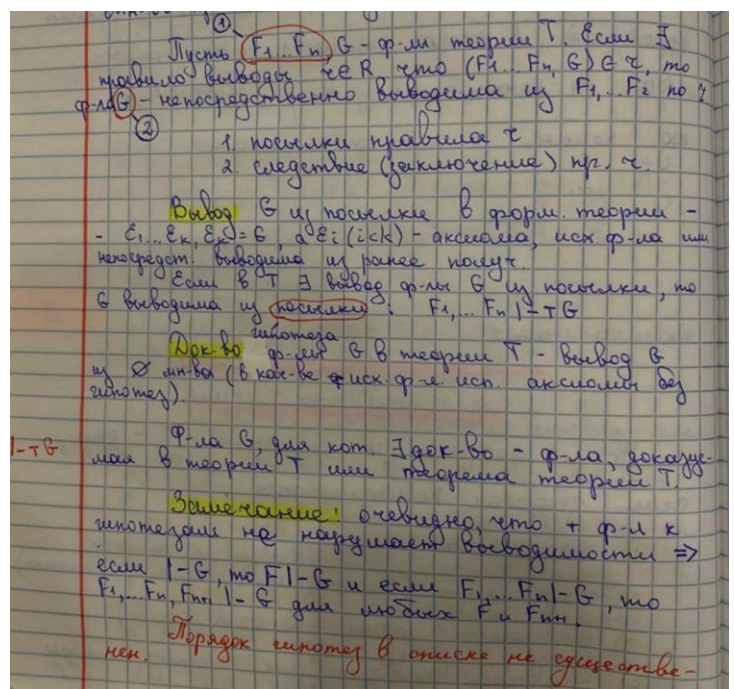 ①
Пусть F1...Fn, G - ф-лы теории T. Если ∃
правило выводы r∈R, что (F1...Fn, G) ∈ r, то
ф-ла G - непосредственно выводима из F1,...Fz по r
②
1. посылки правила r
2. следствие (заключение) пр. r.
Вывод G из посылки в форм. теории -
- ε1...εk, εk = G, а εi (i<k) - аксиома, исх. ф-ла или
непосредст. выводима из ранее получ.
Если в T ∃ вывод ф-лы G из посылки, то
G выводима из посылки: F1,... Fn |-T G
гипотеза
Док-во ф-лы G в теории T - вывод G
из ∅ мн-ва (в кач-ве исх. ф-л. исп. аксиомы без
гипотез).
|-T G
Ф-ла G, для кот. ∃ док-во - ф-ла, доказуе-
мая в теории T или теорема теории T.
Замечание! очевидно, что + ф-л к
гипотезам не нарушает выводимости =>
если |-G, то F|-G и если F1,...Fn|-G, то
F1,...Fn, Fn+1 |- G для любых F и Fn+1.
Порядок гипотез в списке не существе-
нен.